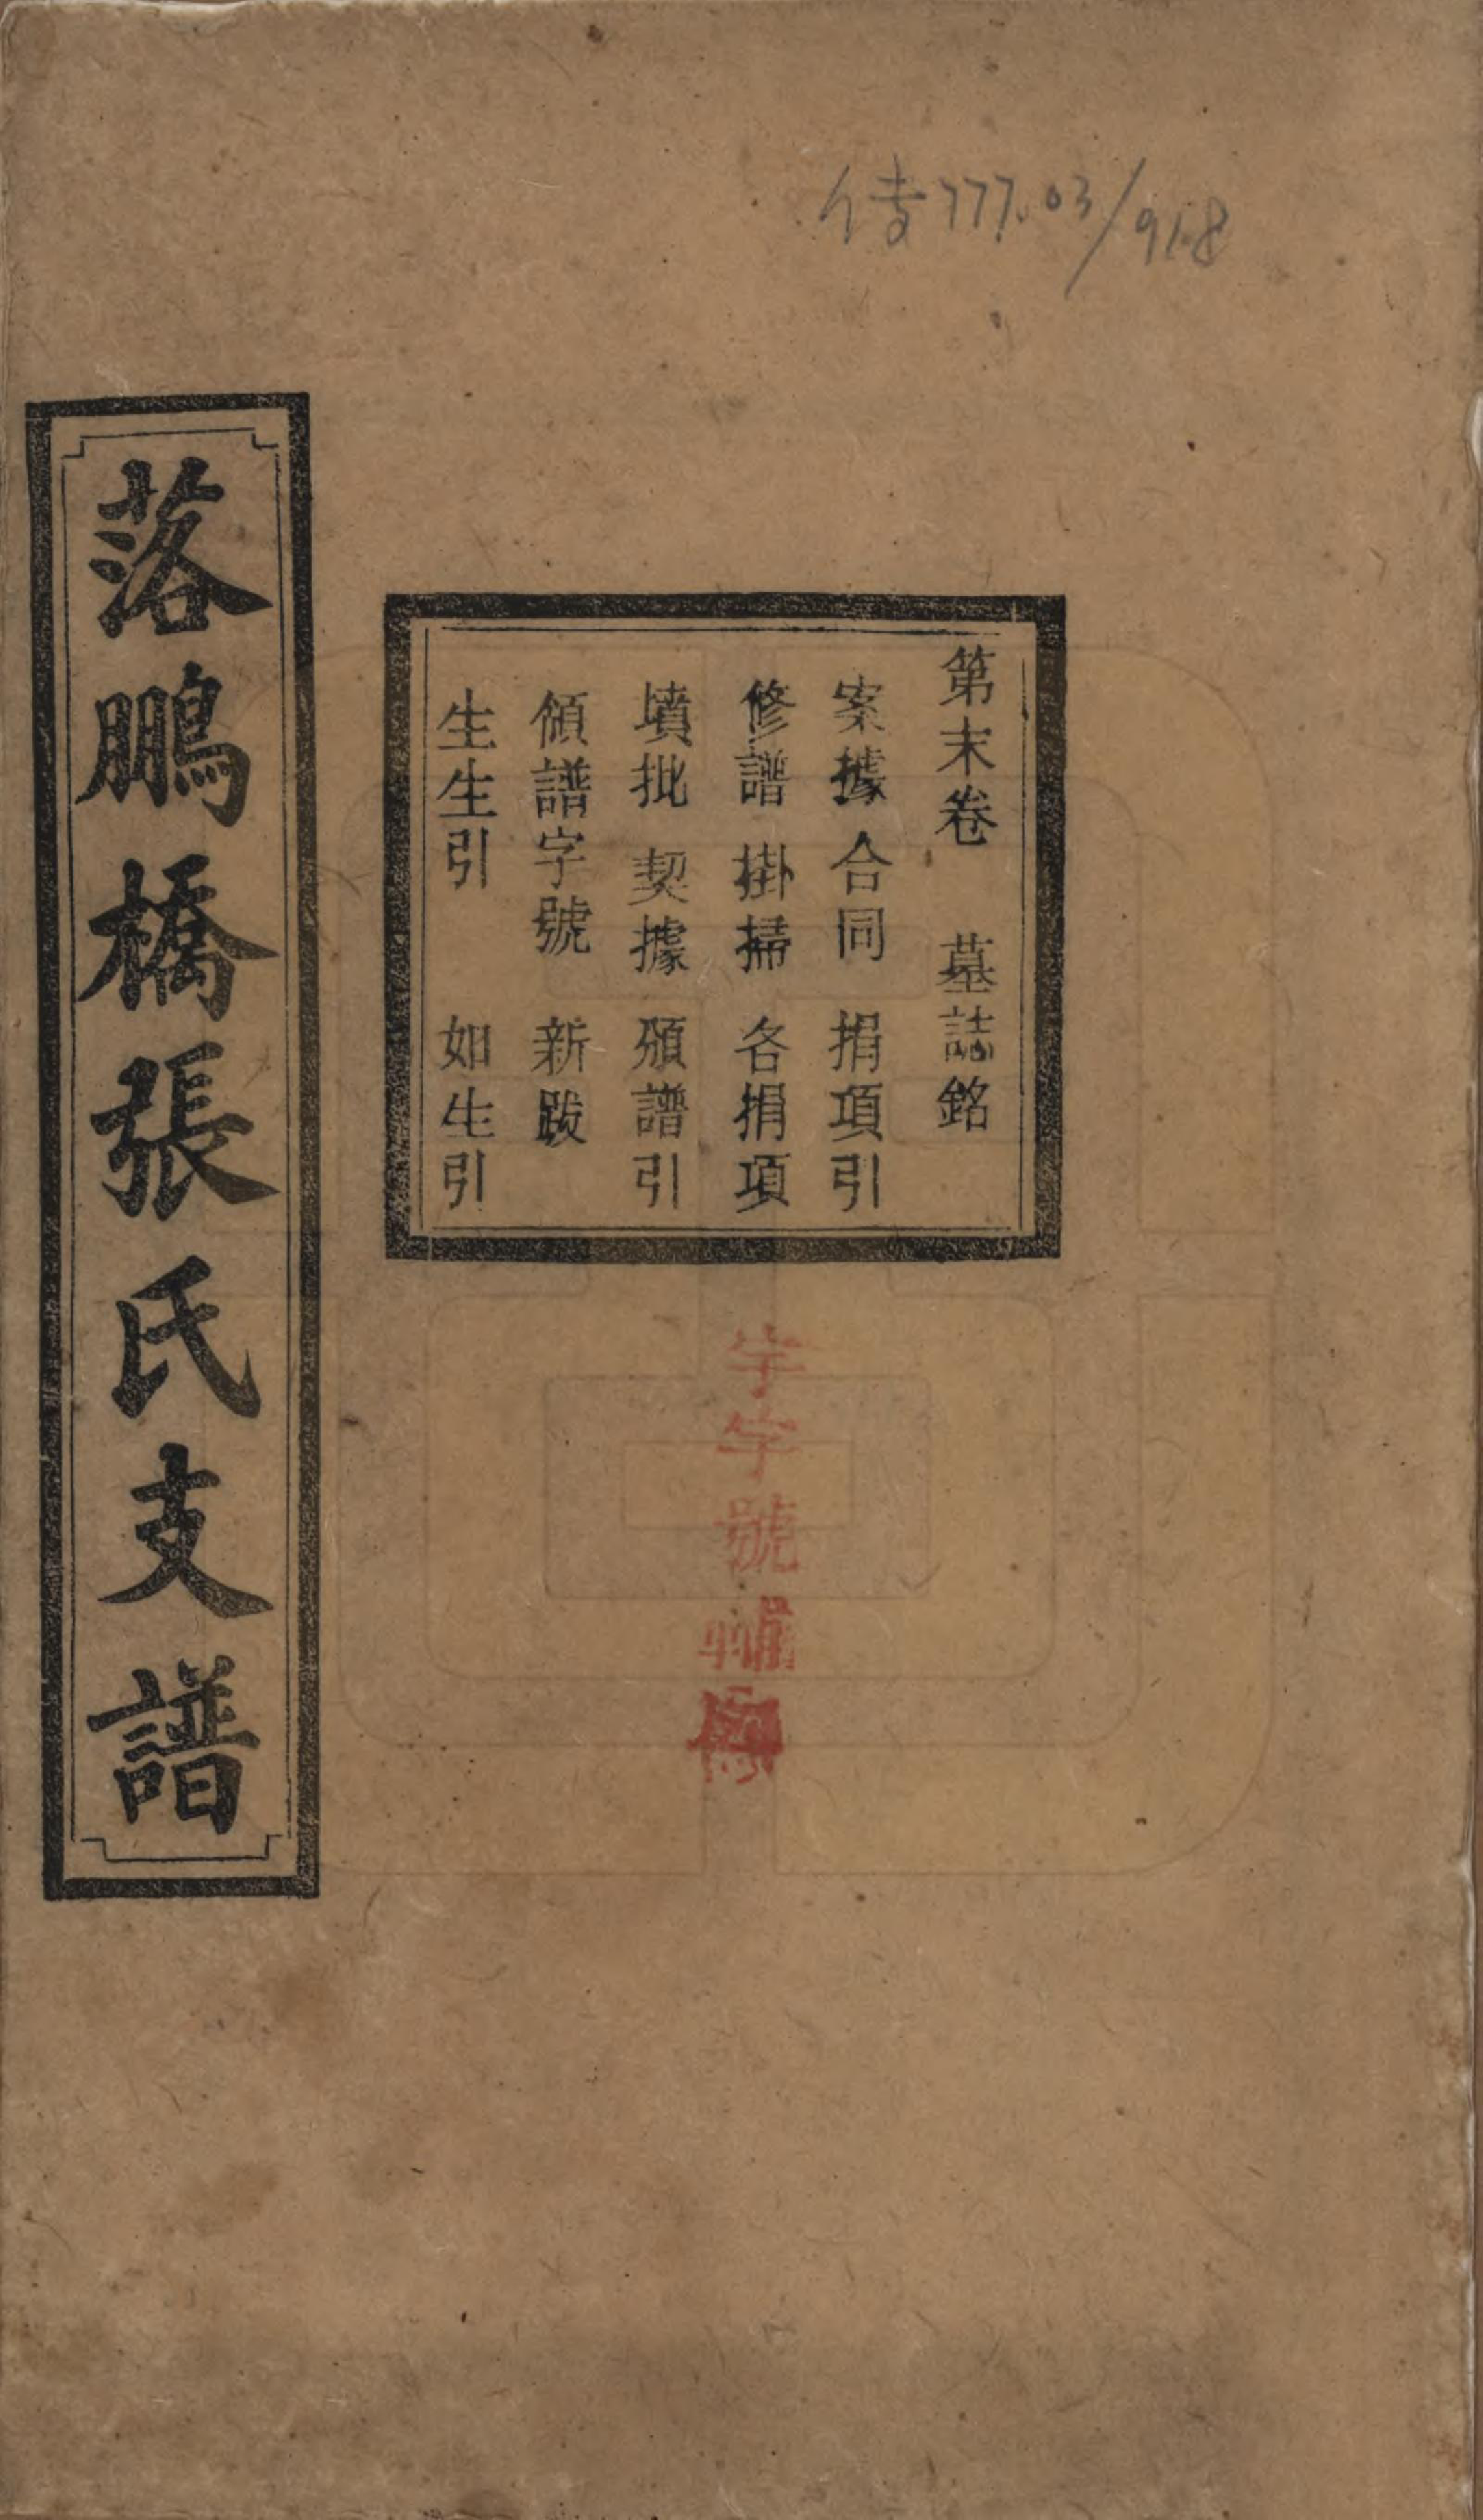 传777.03/918
第末卷 墓誌銘
案據 合同 捐項引
修譜 掛掃 各捐項
墳批 契據 頒譜引
領譜字號 新跋
生生引 如生引
落鵬橋張氏支譜
字號